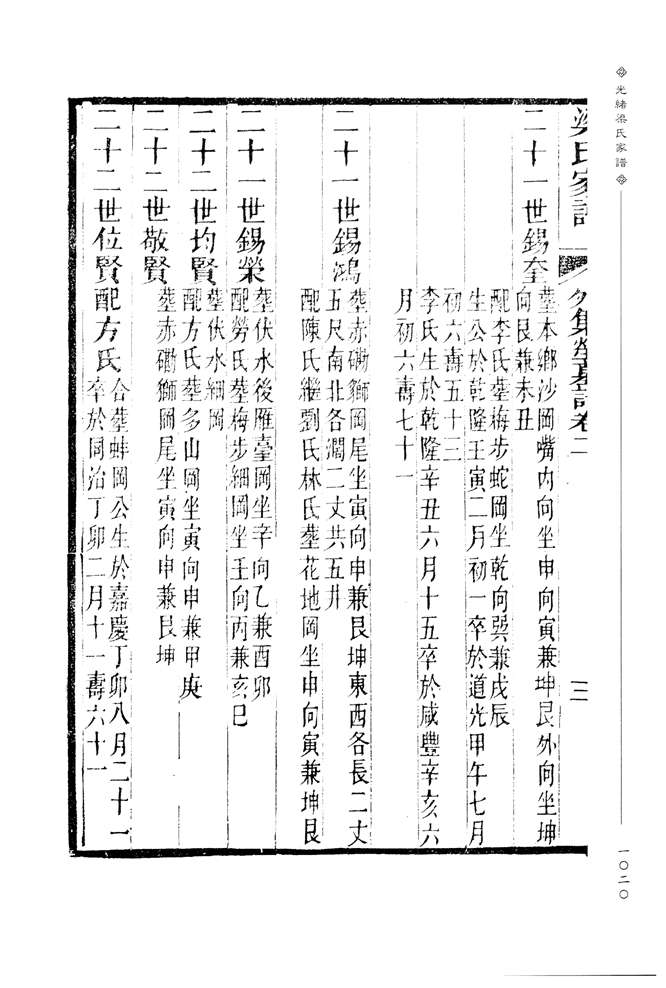 光緒梁氏家譜
一〇二〇
梁氏家譜 外集塋墓記卷二 三
二十一世錫奎
葬本鄉沙岡嘴內向坐申向寅兼坤艮外向坐坤
向艮兼未丑
配李氏葬梅步蛇岡坐乾向巽兼戊辰
生公於乾隆壬寅二月初一卒於道光甲午七月
初六壽五十三
李氏生於乾隆辛丑六月十五卒於咸豐辛亥六
月初六壽七十一
二十一世錫鴻
葬赤磡獅岡尾坐寅向申兼艮坤東西各長二丈
五尺南北各濶二丈共五井
配陳氏繼劉氏林氏葬花地岡坐申向寅兼坤艮
二十一世錫榮
葬伏水後雁臺岡坐辛向乙兼酉卯
配勞氏葬梅步細岡坐壬向丙兼亥巳
二十二世均賢
葬伏水細岡
配方氏葬多山岡坐寅向申兼甲庚
二十二世敬賢
葬赤磡獅岡尾坐寅向申兼艮坤
二十二世位賢配方氏
合葬蚌岡公生於嘉慶丁卯八月二十一
卒於同治丁卯二月十一壽六十一